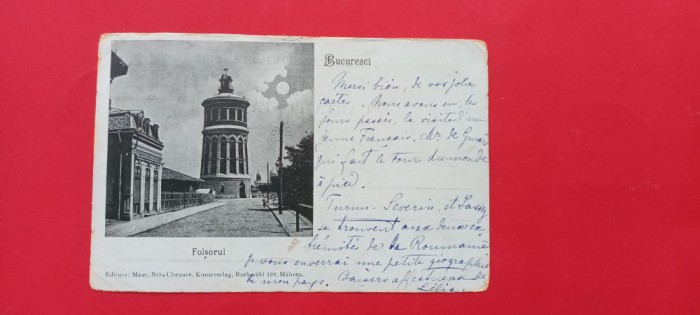 Bucuresci
Merci bien, de vos jolies
cartes. Nous avons eu, les
jours passés, la visite d'un
jeune Français, Mr. de
qui fait le tour du monde
à pied.
Turnu-Severin, et Jassy
se trouvent aux deux ex
trémités de la Roumanie
Je vous enverrai une petite géographie
de mon pays. Baisers affectueux de
Lélia.
Foişorul
Editura: Maier, Kunstverlag, Rothmühl 109, Mähren.